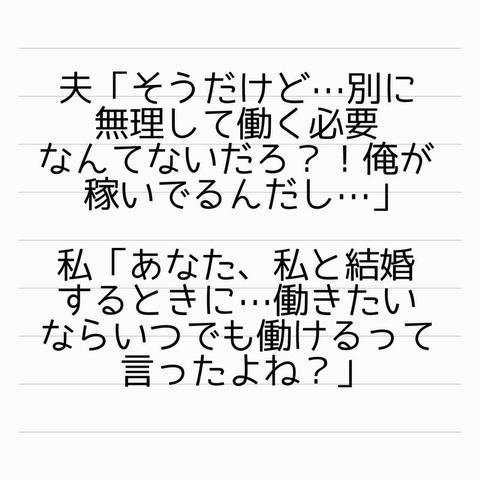 夫「そうだけど…別に
無理して働く必要
なんてないだろ？！俺が
稼いでるんだし…」
私「あなた、私と結婚
するときに…働きたい
ならいつでも働けるって
言ったよね？」